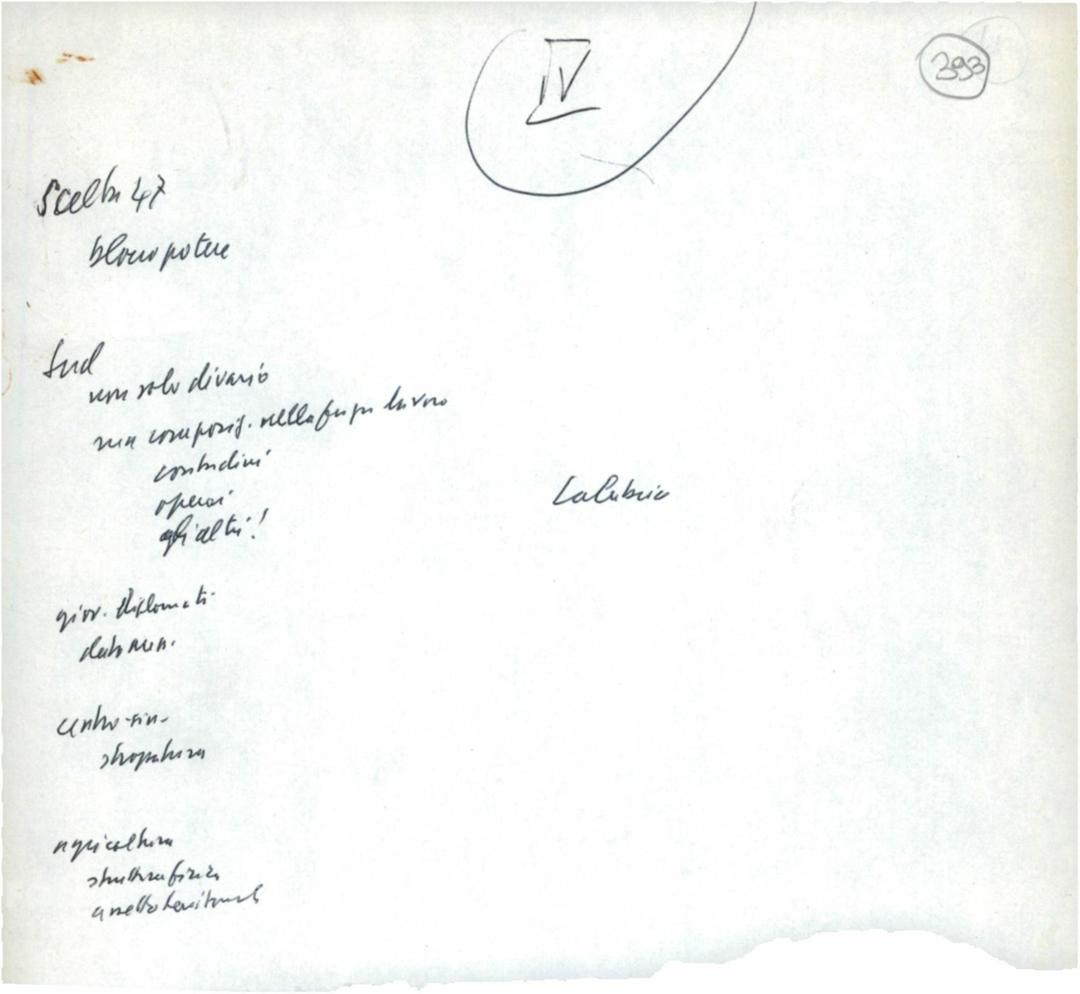 IV
393
Scelta 47
blocco potere
Sud
non solo divario
ma composiz. nella forza lavoro
contadini
operai
gli altri!
Calabria
giov. diplomati
dato
centro-sin.
strozzatura
agricoltura
struttura fisica
assetto territoriale